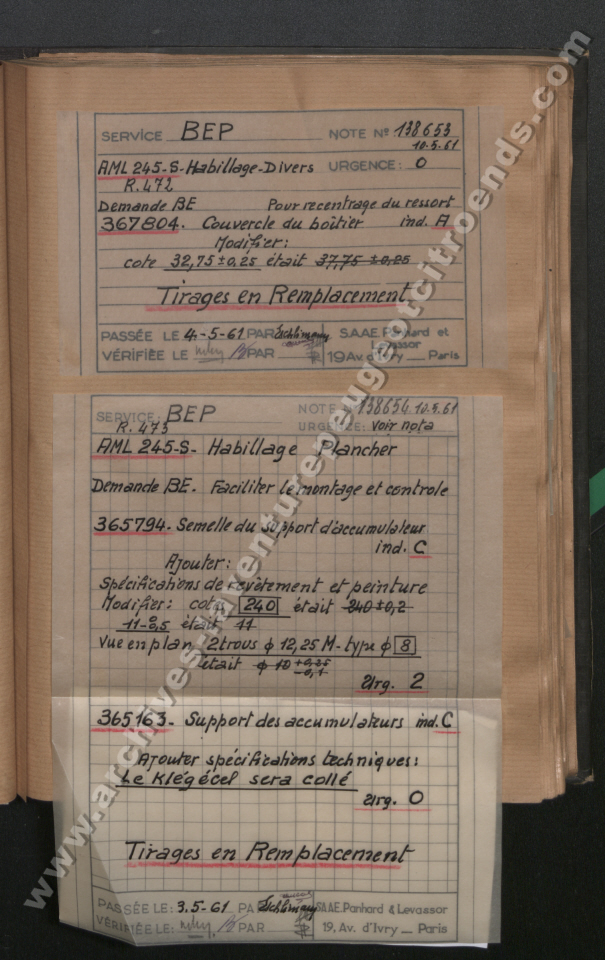 SERVICE BEP NOTE Nº 138653
10.5.61
AML 245-S-Habillage-Divers URGENCE: 0
R.472
Demande BE Pour recentrage du ressort
367804. Couvercle du boîtier ind. A
Modifier:
cote 32,75 ± 0,25 était 37,75 ± 0,25
Tirages en Remplacement
PASSÉE LE 4-5-61 PAR S.A.A.E. Panhard et
Levassor
VÉRIFIÉE LE PAR 19 Av. d'Ivry _ Paris
SERVICE: BEP NOTE 138654 10.5.61
R.473 URGENZE: Voir nota
AML 245-S- Habillage Plancher
Demande BE. Faciliter le montage et controle
365794. Semelle du support d'accumulateur
ind. C
Ajouter:
Spécifications de revêtement et peinture
Modifier: cote 240 était 240 ± 0,2
11-0,5 était 11
Vue en plan 2 trous ϕ 12,25 M-type ϕ 8
était ϕ 10 +0,25
-0,1
Urg. 2
365163- Support des accumulateurs ind. C
Ajouter spécifications techniques:
Le Klégécel sera collé
Urg. 0
Tirages en Remplacement
PASSÉE LE: 3.5-61 PAR SAAE. Panhard & Levassor
VÉRIFIÉE LE: PAR 19, Av. d'Ivry _ Paris
www.archives-laventurepeugeotcitroends.com